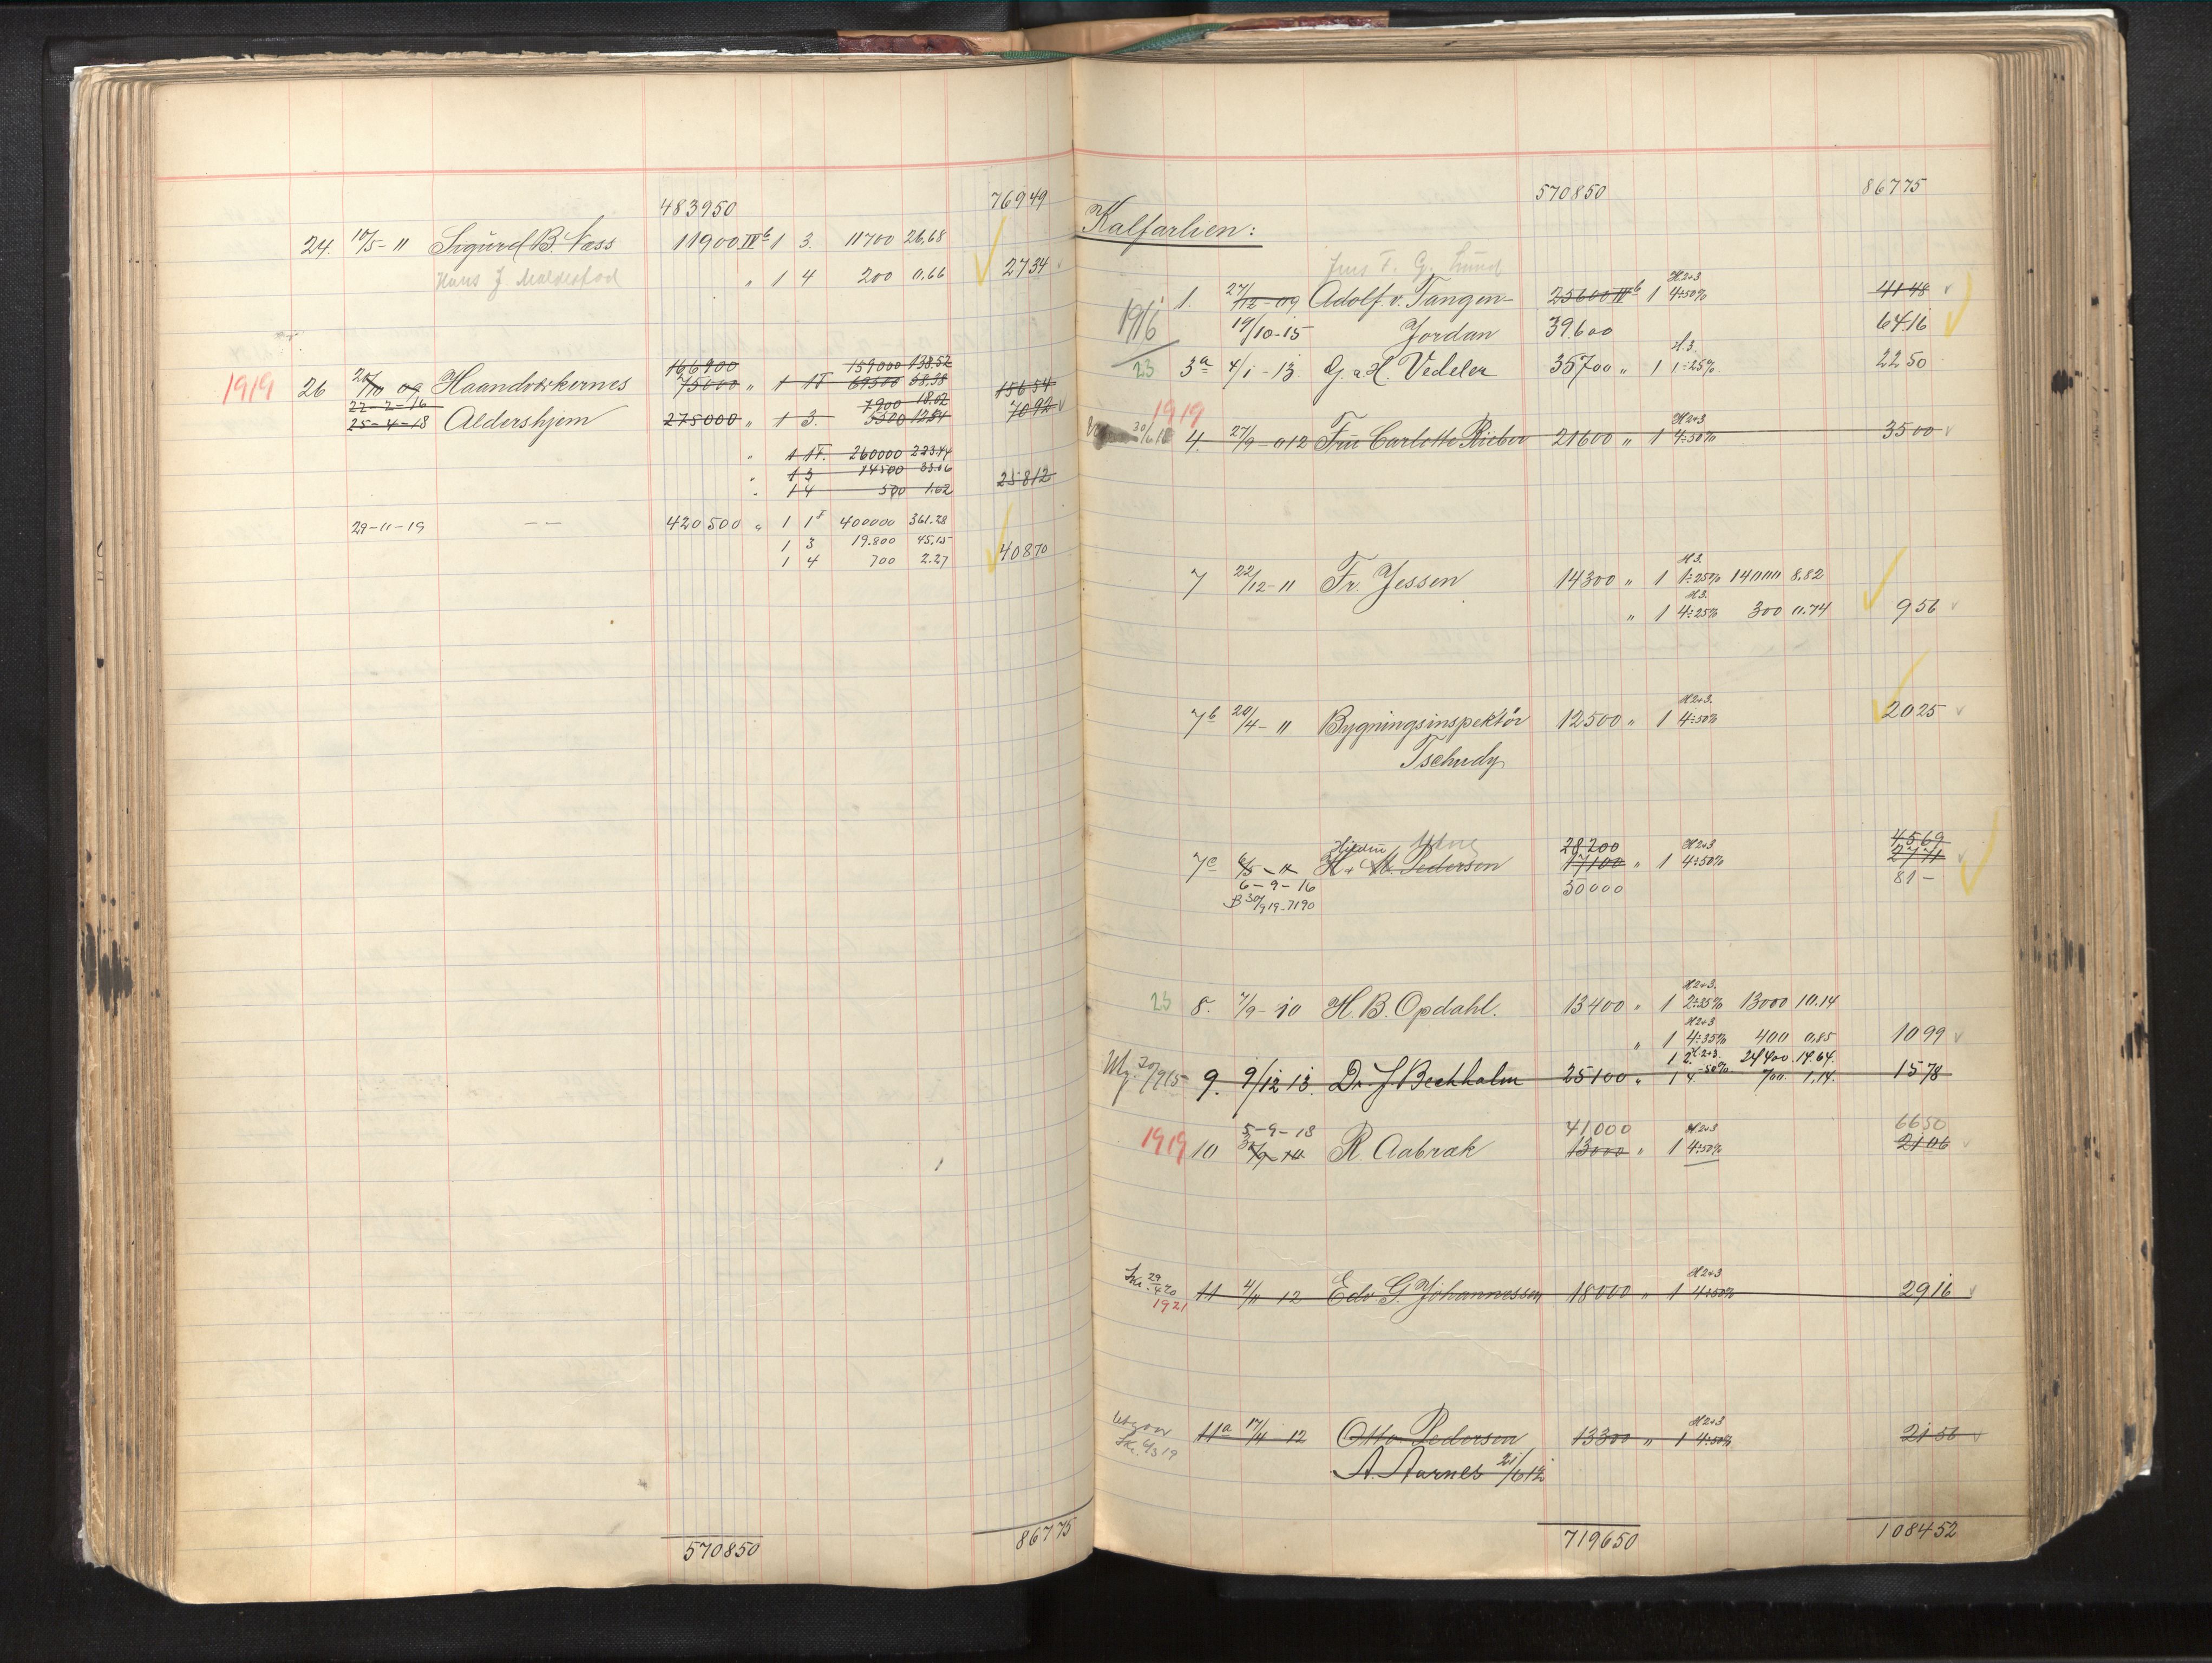 483950 76949
24. 10/5-11 Sigurd B. Næss 11900 IVb 1 3. 11700 26,68
Hans J. " 1 4 200 0.66 2734
166900 159000 138.52
1919 26 09 Haandværkernes 75000 " 1 1F 69500 58,38 15654
22-2-16 7900 18.02 7092
25-4-18 Aldershjem 275000 " 1 3. 5500 12,54
" 1 1F. 260000 223.44
" 1 3 14500 33.06
" 1 4 500 1.62 25812
29-11-19 — — 420500 " 1 1F 400000 361.28
1 3 19.800 45,15
1 4 700 2.27 40870
570850 86775
570850 86775
Kalfarlien:
Jens F. G. Lund
1. 27/12-09 Adolf v. Tangen- 25600 IVb 1 H2+3 4÷50% 4148
1916 19/10-15 Jordan 39.600 6416
23 3a 4/1-13. G. a. H. Vedeler 35700 " 1 H.3. 1÷25% 2250
1919
30/6 18 4. 27/9-012 Fru Carlotte Rieber 21600 " 1 H2+3 4÷50% 3500
7 22/12-11 Fr. Jessen 14300 " 1 H3. 1÷25% 14000 8.82
" 1 H3. 4÷25% 300 0.74 956
7b 20/4-11 Bygningsinspektör 12500 " 1 H2+3. 4÷50% 2025
Tschudy
28200 4569
7c 6/5-11 H. & M. Pedersen 17100 " 1 H2+3 4÷50% 2771
6-9-16 50000 81-
B 30/9 19-7190
23 8. 7/9-10 H. B. Opdahl. 13400 " 1 H2+3. 2÷35% 13000 10.14
" 1 H2+3 4÷35% 400 0,85 1099
1 2. H2+3. 24400. 14.64.
9. 9/12 13. Dr. J Bechholm 25100 " 1 4 50% 700. 1,14. 1578
5-9-18 41000 H2+3 6650
1919 10 R. Aabrak 13000 " 1 4÷50% 2106
29/4 20 11 4/11 12 Edv. G. Johannessen 18000 " 1 H2+3 4÷50% 2916
1921
Utgaar 11a 17/4-12 Otto Pedersen 13300 " 1 H2+3 4÷50% 2156
A. Aarnes 21/6 12
719650 108452